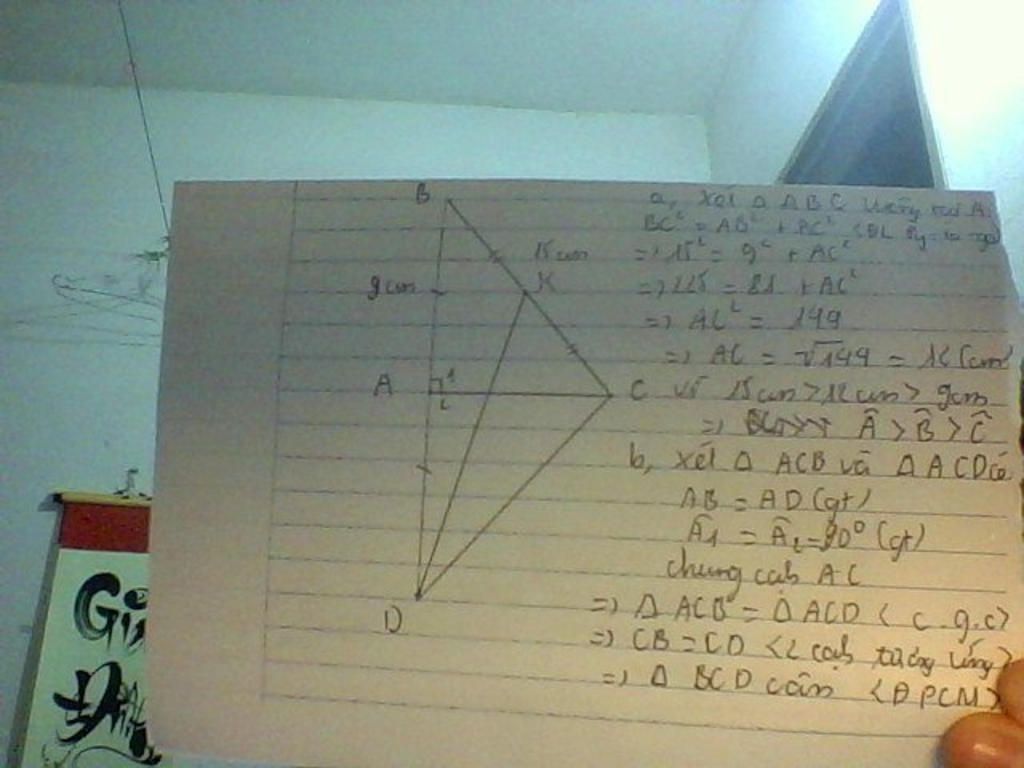 B
15 cm
9 cm
K
A
1
2
C
D
a, Xét Δ ABC vuông tại A:
BC² = AB² + AC² (ĐL Py-ta-go
=> 15² = 9² + AC²
=> 225 = 81 + AC²
=> AC² = 144
=> AC = √144 = 12 (cm)
Vì 15 cm > 12 cm > 9cm
=> Â > B̂ > Ĉ
b, Xét Δ ACB và Δ ACD có
AB = AD (gt)
Â1 = Â2 = 90° (gt)
chung cạh AC
=> Δ ACB = Δ ACD < c.g.c>
=> CB = CD <2 cạh tương ứng>
=> Δ BCD cân <ĐPCM>